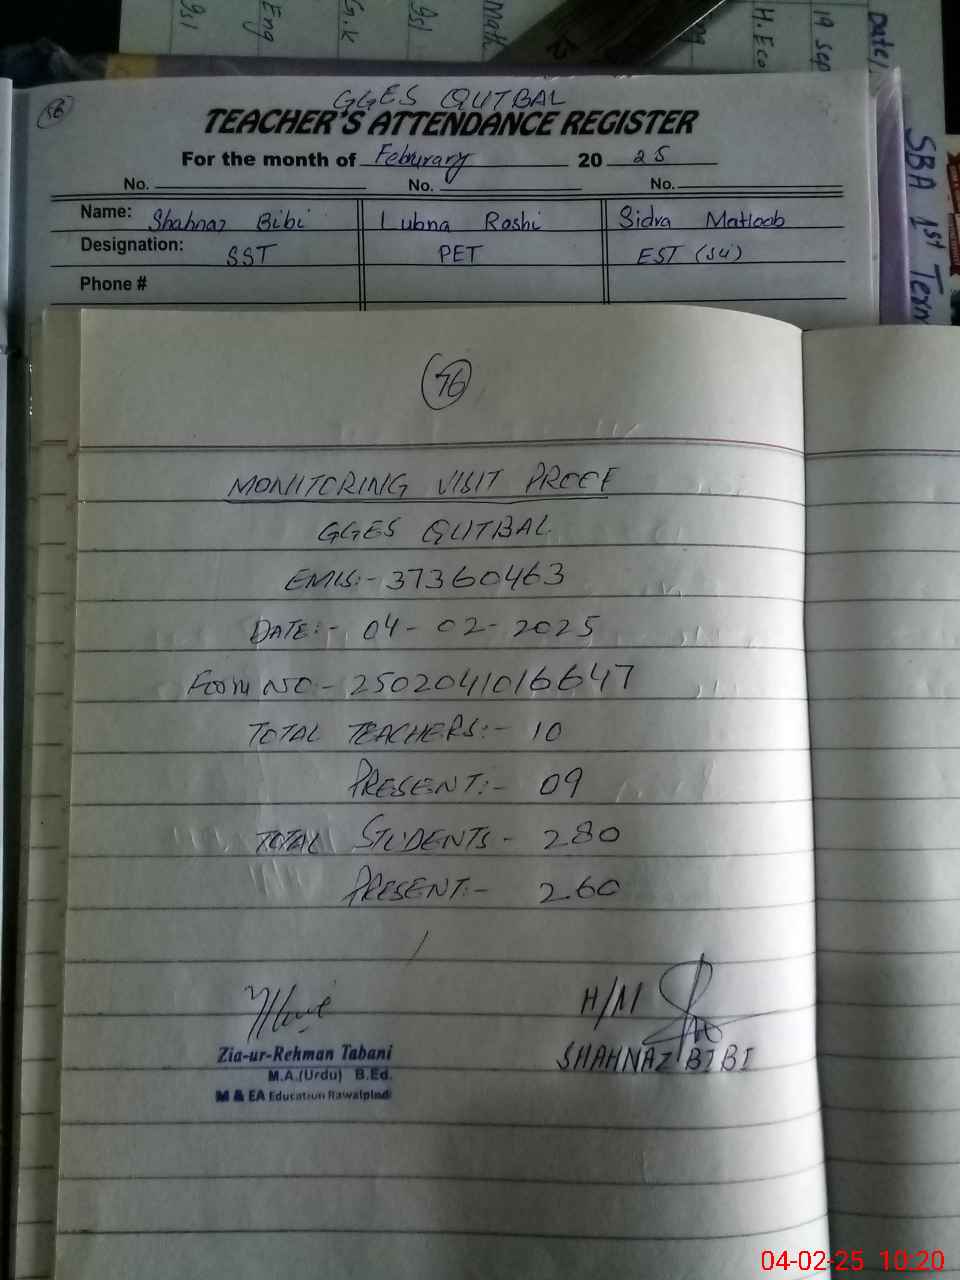 Isl
Eng
G.K
Isl
Math
Eng
H. Eco
19 sep
Date/
12
56
GGES QUTBAL
TEACHER'S ATTENDANCE REGISTER
For the month of Feburary 20 25
No. No. No.
Name: Shahnaz Bibi Lubna Roshi Sidra Matloob
Designation: SST PET EST (SU)
Phone #
SBA 1st Term
76
MONITORING VISIT PROOF
GGES QUTBAL
EMIS:- 37360463
DATE:- 04-02-2025
Form NO- 2502041016647
TOTAL TEACHERS:- 10
PRESENT:- 09
TOTAL STUDENTS- 280
PRESENT:- 260
H/M
Zia-ur-Rehman Tabani
M.A.(Urdu) B.Ed.
M & EA Education Rawalpindi
SHAHNAZ BIBI
04-02-25 10:20